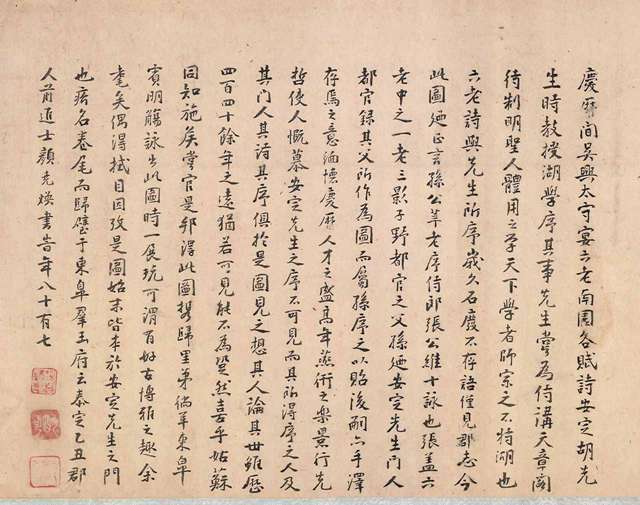 慶曆間吳興太守宴六老南園各賦詩安定胡先
生時教授湖學序其事先生嘗為侍講天章閣
待制明聖人體用之學天下學者師宗之不特湖也
六老詩與先生所序歲久石廢不存語僅見郡志今
此圖廼正言孫公莘老序侍郎張公維十詠也張盖六
老中之一老三影子野都官之父孫廼安定先生門人
都官録其父所作為圖而屬孫序之以貽後嗣亦手澤
存焉之意緬懷慶曆人才之盛高年燕衎之樂景行先
哲使人慨慕安定先生之序不可見而其所得序之人及
其門人其詩其序俱於是圖見之想其人論其世雖歷
四百四十餘年之遠猶若可見能不為跫然喜乎姑蘇
同知施矣嘗官是邦得此圖携歸里第徜羊東皐
賓朋觴詠出此圖時一展玩可謂有好古博雅之趣余
耄矣偶得拭目因攷是圖始末皆本於安定先生之門
也㾗名卷尾而歸璧于東皐羣玉府云泰定乙丑郡
人前進士顏堯煥書旹年八十有七